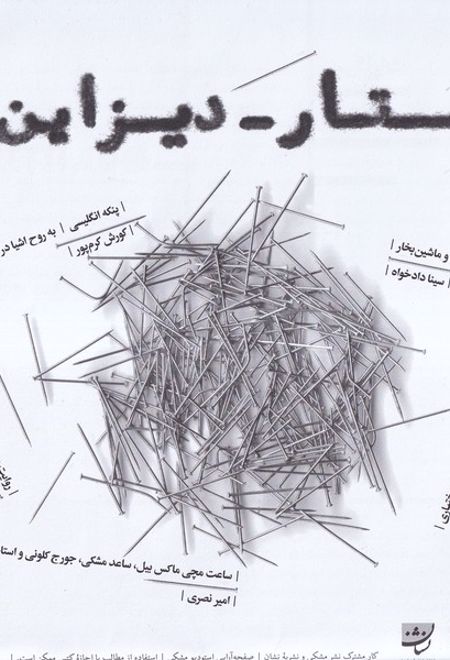 ستار-دیزاین
| پنکه انگلیسی | به روح اشیا در
| کورش کرم‌پور |
و ماشین بخار |
| سینا دادخواه |
| روایت
| ساعت مچی ماکس بیل، ساعد مشکی، جورج کلونی و استا
| امیر نصری |
نشان
کار مشترک نشر مشکی و نشریهٔ نشان | صفحه‌آرایی استودیو مشکی | استفاده از مطالب با اجازهٔ کتبی ممکن است. |